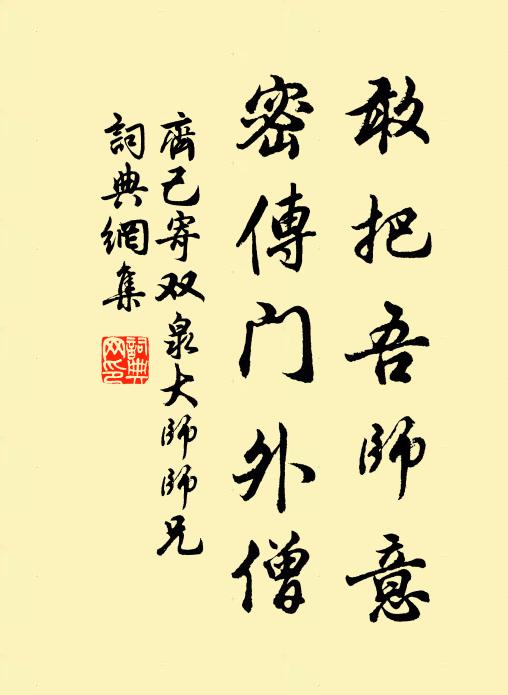 敢把吾师意
密傳门外僧
齊己寄双泉大师师兄
詞典網集
詞典网印